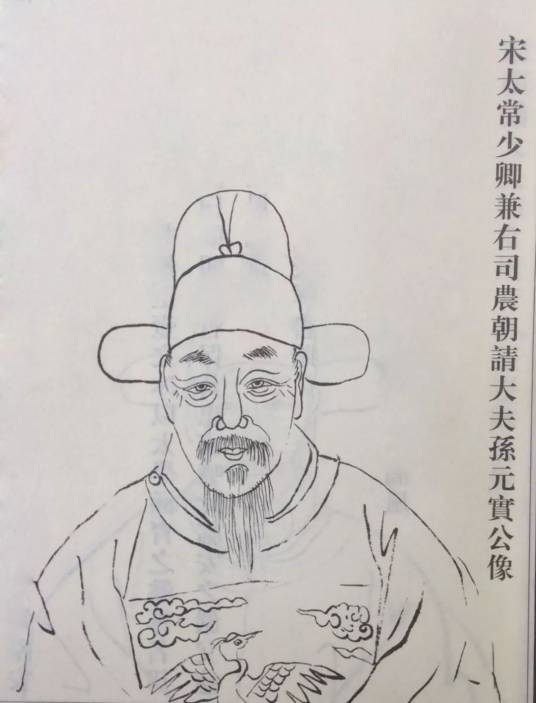 宋太常少卿兼右司農朝請大夫孫元實公像